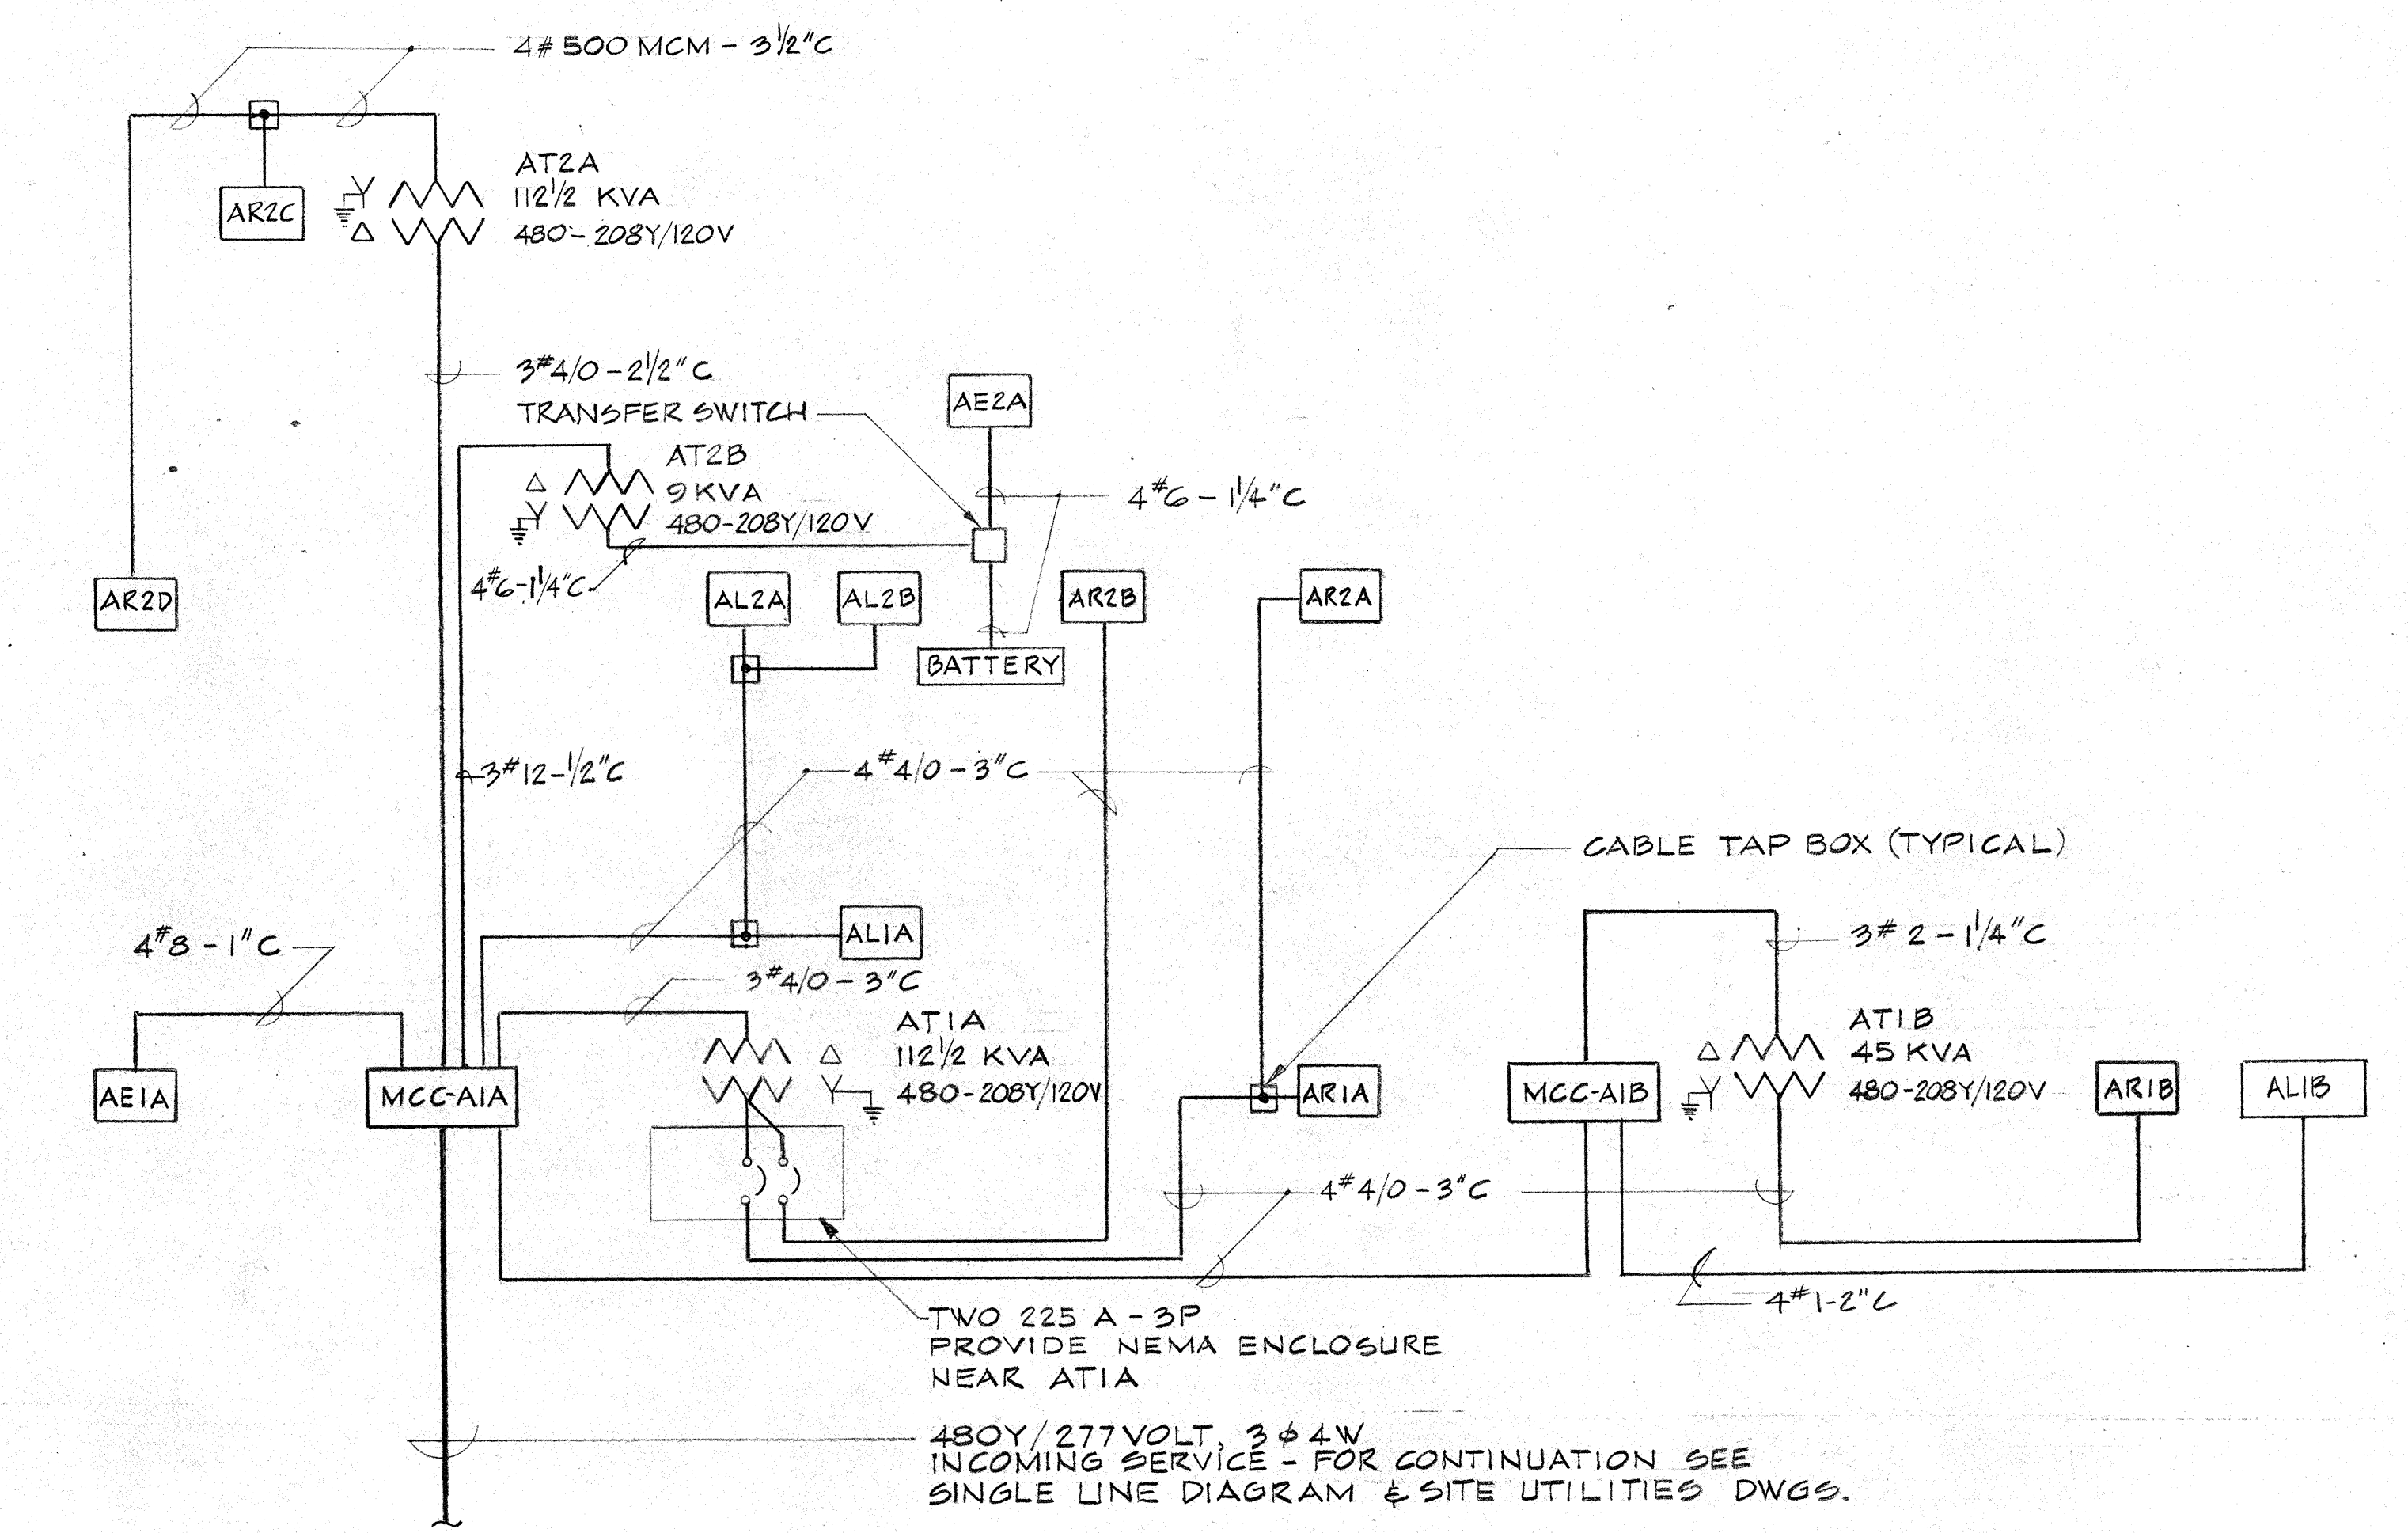 4# 500 MCM - 3 1/2" C
AT2A
112 1/2 KVA
480 - 208Y/120V
AR2C
3#4/0 - 2 1/2" C
TRANSFER SWITCH
AE2A
AT2B
9 KVA
480-208Y/120V
4#6 - 1 1/4" C
4#6-1 1/4" C
AR2D
AL2A
AL2B
AR2B
AR2A
BATTERY
3#12-1/2" C
4#4/0 - 3" C
CABLE TAP BOX (TYPICAL)
4#8 - 1" C
AL1A
3# 2 - 1 1/4" C
3#4/0 - 3" C
AT1A
112 1/2 KVA
480-208Y/120V
AT1B
45 KVA
480-208Y/120V
AE1A
MCC-A1A
AR1A
MCC-A1B
AR1B
AL1B
4#4/0 - 3" C
4#1-2" C
TWO 225 A - 3P
PROVIDE NEMA ENCLOSURE
NEAR AT1A
480Y/277 VOLT, 3 φ 4W
INCOMING SERVICE - FOR CONTINUATION SEE
SINGLE LINE DIAGRAM & SITE UTILITIES DWGS.